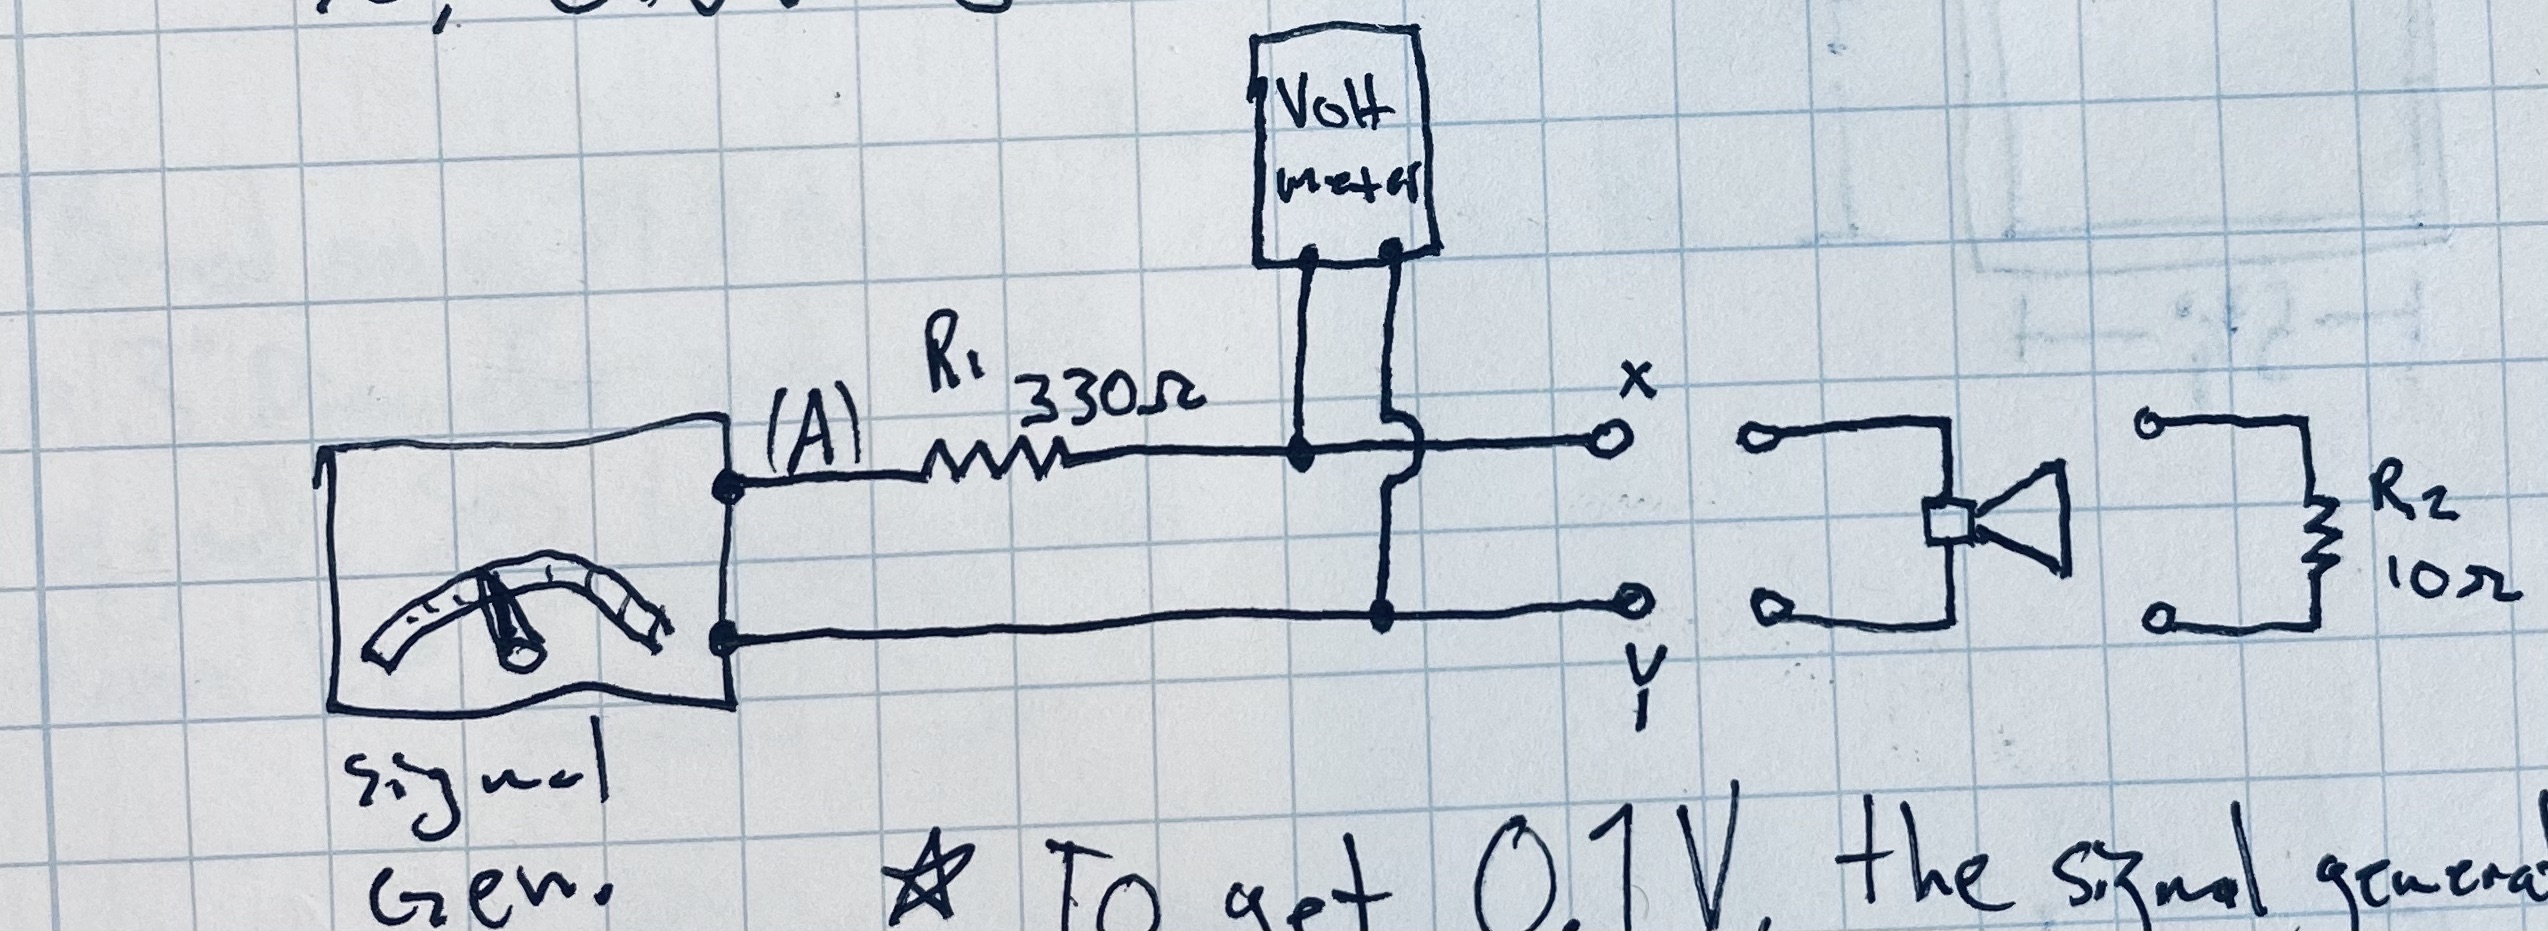 Volt
meter
R1 330Ω
(A)
X
R2
10Ω
Y
signal
Gen.
☆ To get 0.1V, the signal